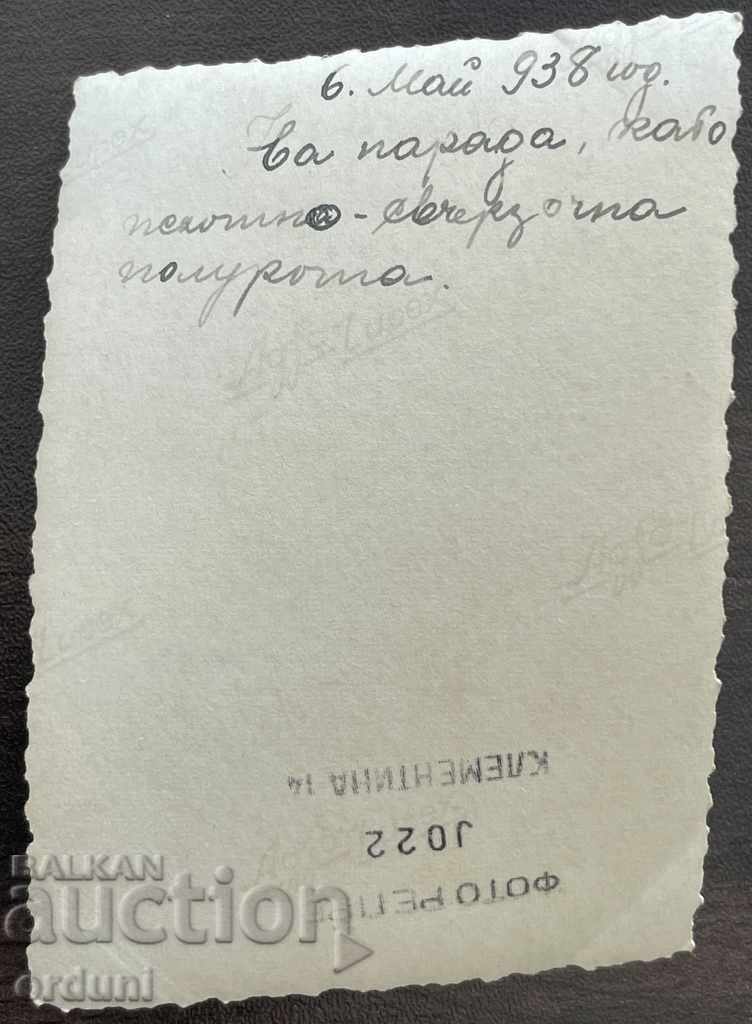 6. Май 938 год.
На парада, като
пехотно-свързочна
полурота.
КЛЕМЕНТИНА 14
J022
ФОТО РЕПЕР
BALKAN
auction
orduni